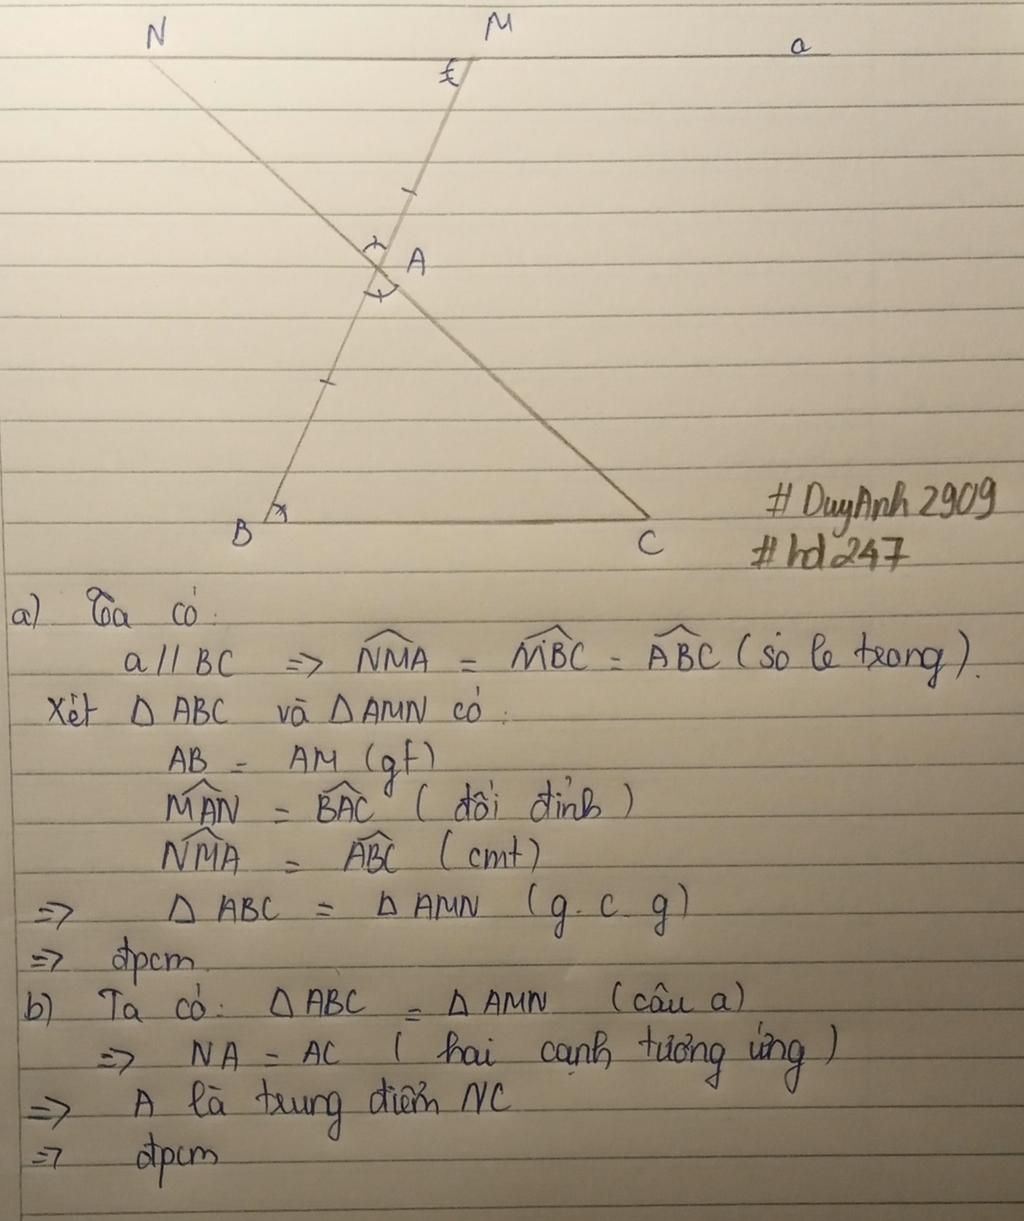 N M a
A
B C
# DuyAnh 2909
# hd247
a) Ta có:
a // BC => \widehat{NMA} = \widehat{MBC} = \widehat{ABC} (so le trong).
Xét Δ ABC và Δ AMN có:
AB = AM (gt)
\widehat{MAN} = \widehat{BAC} (đối đỉnh)
\widehat{NMA} = \widehat{ABC} (cmt)
=> Δ ABC = Δ AMN (g.c.g)
=> đpcm
b) Ta có: Δ ABC = Δ AMN (câu a)
=> NA = AC (hai cạnh tương ứng)
=> A là trung điểm NC
=> đpcm